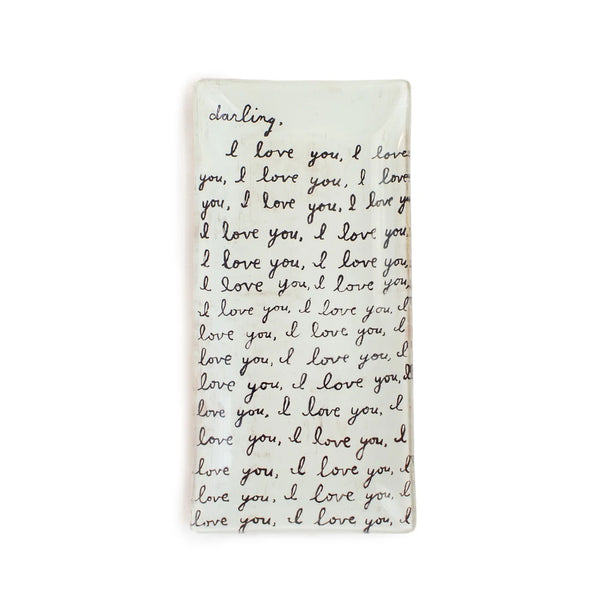 darling,
I love you, I love
you, I love you, I love
you, I love you, I love you
I love you, I love you,
I love you, I love you,
I love you, I love you,
I love you, I love you,
love you, I love you, I
love you, I love you, I
love you, I love you, I
love you, I love you, I
love you, I love you, I
love you, I love you, I
love you, I love you, I
love you, I love you, I